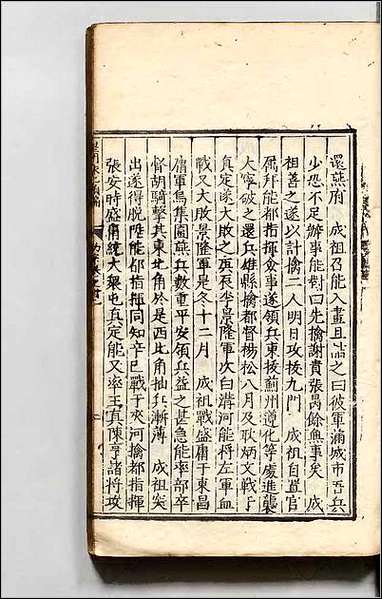 還燕府　成祖召能入畫且語之曰彼軍滿城市吾兵
少恐不足辦事能對曰先擒謝貴張昺餘無事矣　成
祖善之遂以計擒二人明日攻拔九門　成祖自置官
属拜能都指揮僉事遂領兵東掠薊州遵化等處進襲
大寧破之還兵雄縣擒都督楊松八月及耿炳文戰于
真定遂大敗之李景隆軍次白溝河能將左軍血
戰又大敗景隆軍是冬十二月　成祖戰盛庸于東昌
庸軍烏集圍燕兵數重平安領兵益之甚急能率部卒
督胡騎擊其東北角於是西北角抽兵漸薄　成祖突
出遂得脫陞能都指揮同知辛巳戰于夾河擒都指揮
張安時盛庸統大衆屯真定能又率王真陳亨諸將攻